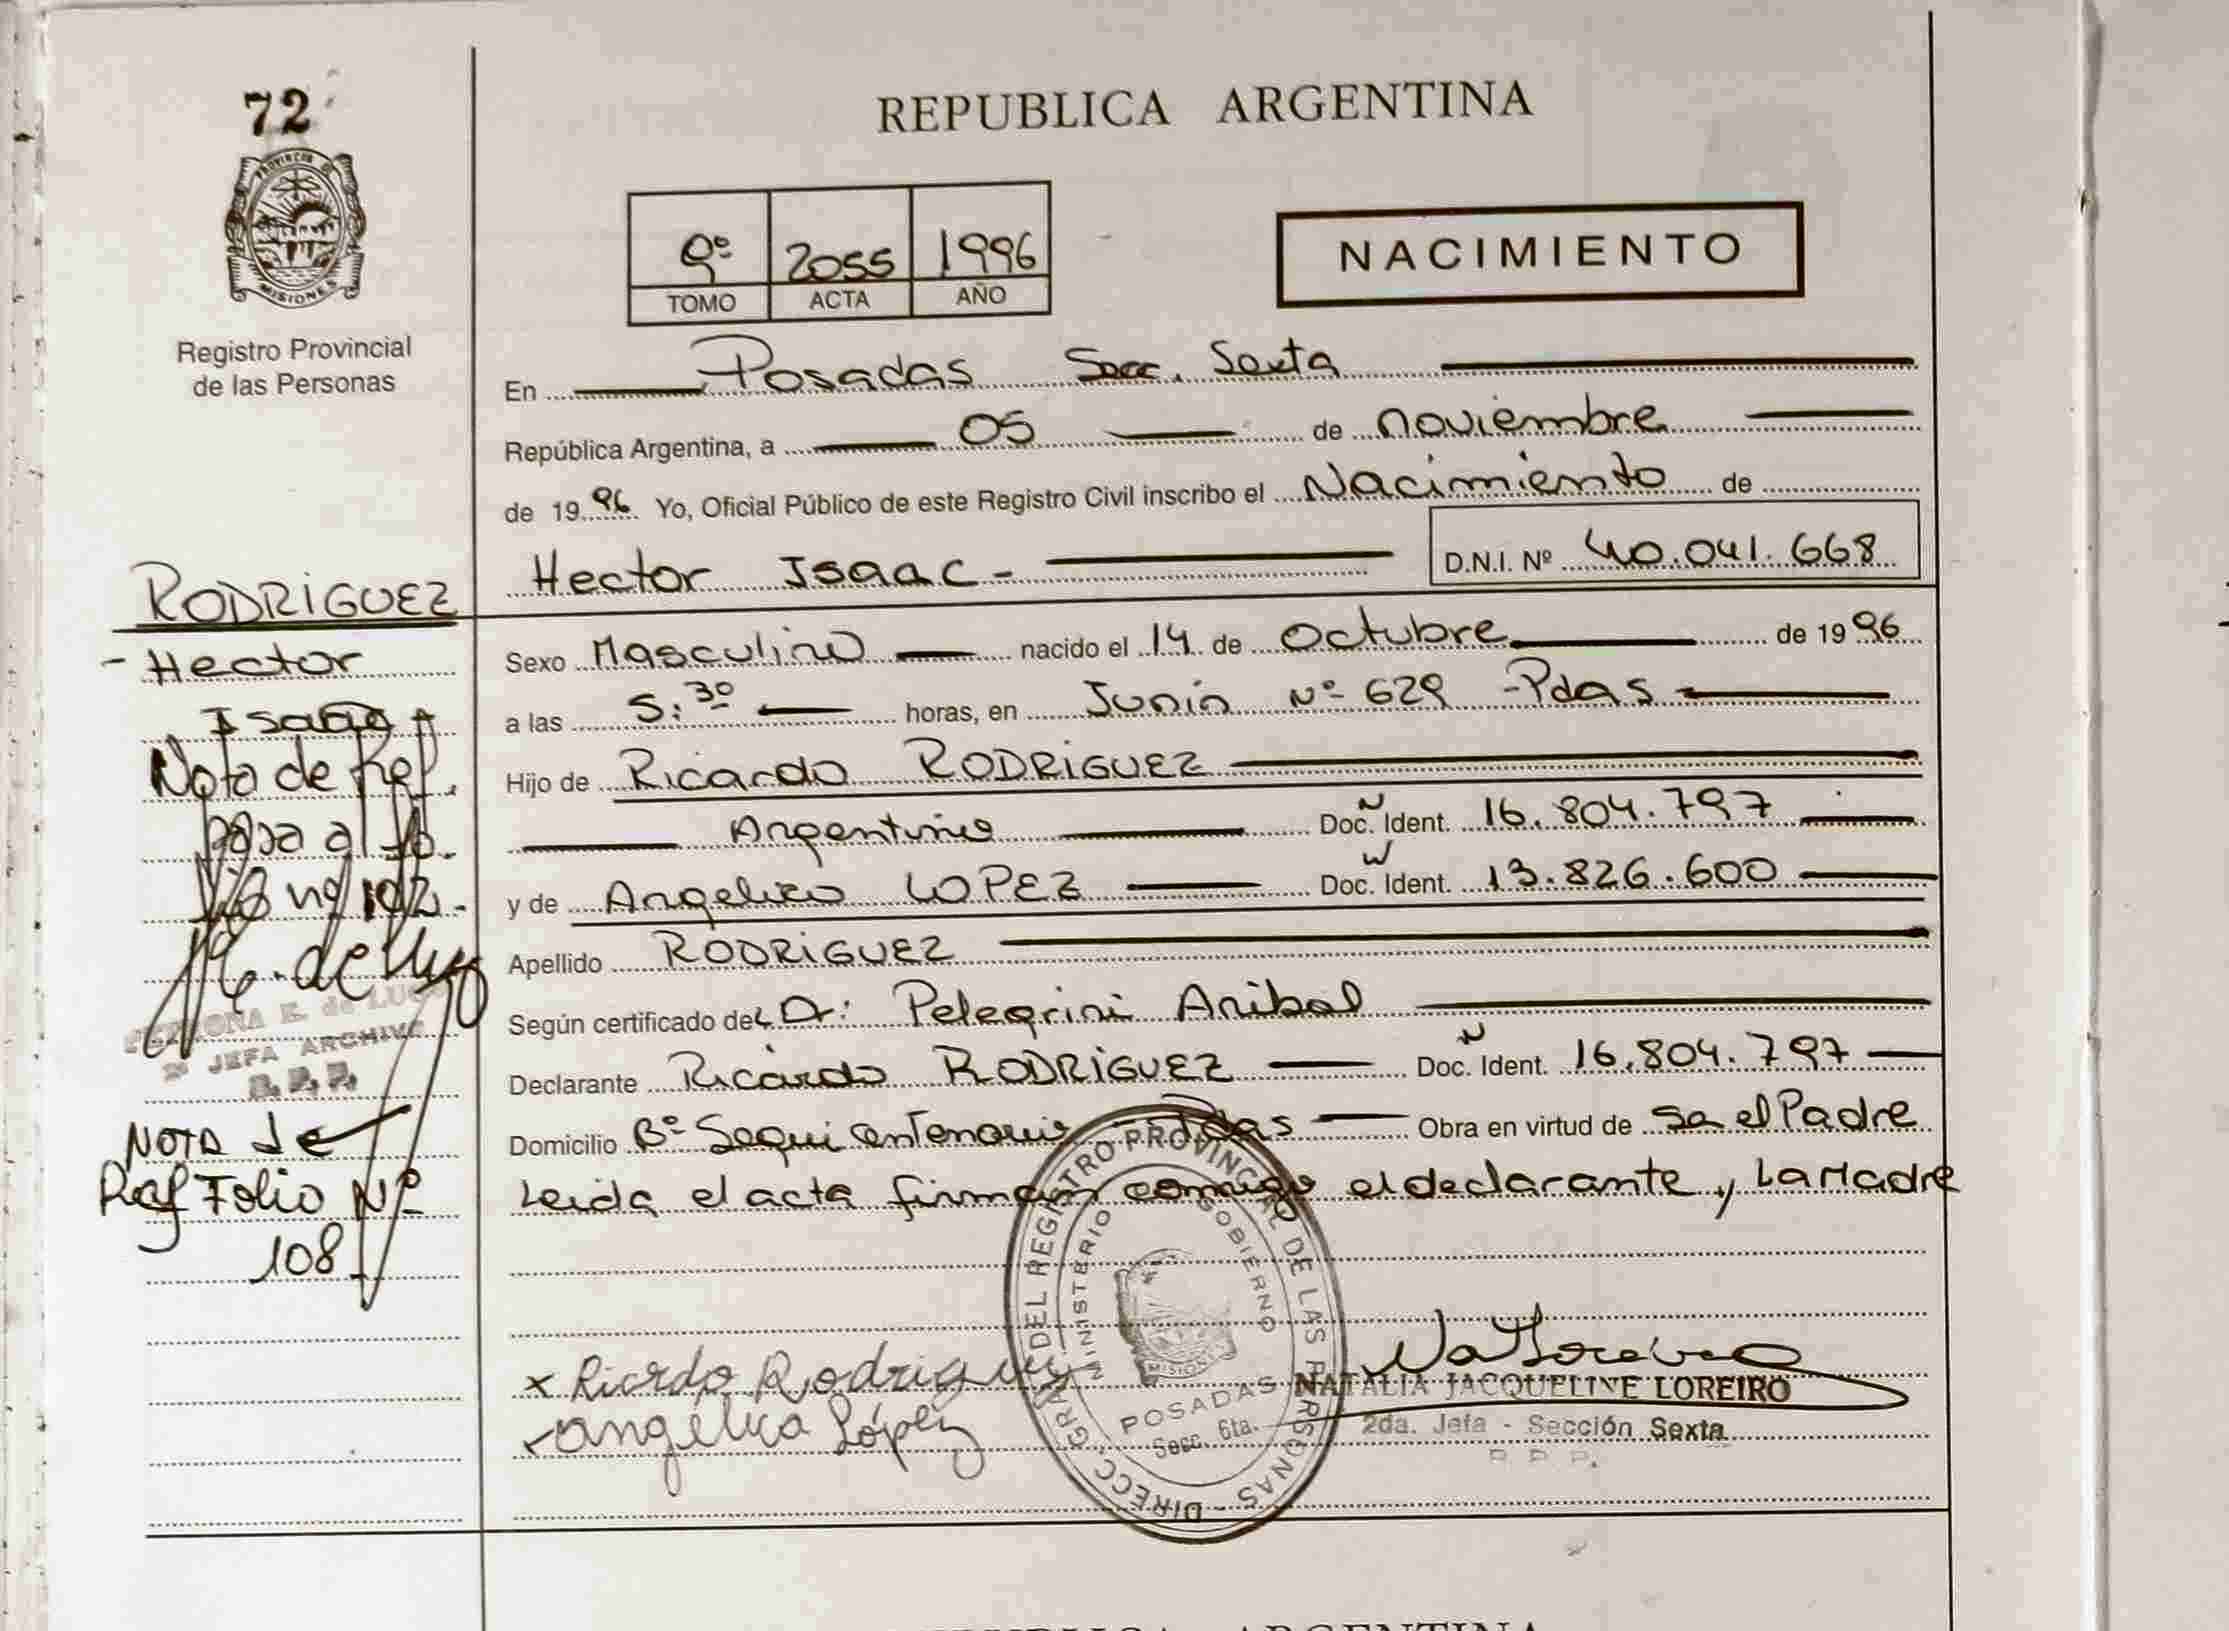 72
PROVINCIA DE MISIONES
Registro Provincial
de las Personas
REPUBLICA ARGENTINA
9º 2055 1996
TOMO ACTA AÑO
NACIMIENTO
En Posadas Secc. Sexta
República Argentina, a 05 de noviembre
de 1996 Yo, Oficial Público de este Registro Civil inscribo el Nacimiento de
Hector Isaac - D.N.I. Nº 40.041.668
Sexo Masculino nacido el 14 de Octubre de 1996
a las 5:30 horas, en Junin Nº 629 - Pdas
Hijo de Ricardo RODRIGUEZ
Argentino Doc. Ident. 16.804.797
y de Angelica LOPEZ Doc. Ident. 13.826.600
Apellido RODRIGUEZ
Según certificado del Dr: Pelegrini Anibal
Declarante Ricardo RODRIGUEZ Doc. Ident. 16.804.797
Domicilio Bº Sequicentenario - Pdas Obra en virtud de Sa el Padre
Leida el acta firman comigo el declarante y La Madre
RODRIGUEZ
- Hector
Isaac
Nota de Ref.
pasa al fo.
102.
JEFA ARCHIVO
R. P. P.
NOTA de
Ref Folio Nº
108
x Ricrdo Rodriguez
Angélica López
DIRECC. GRAL. DEL REGISTRO PROVINCIAL DE LAS PERSONAS
MINISTERIO GOBIERNO
MISIONES
POSADAS
Secc. 6ta.
NATALIA JACQUELINE LOREIRO
2da. Jefa - Sección Sexta
R. P. P.
REPUBLICA ARGENTINA